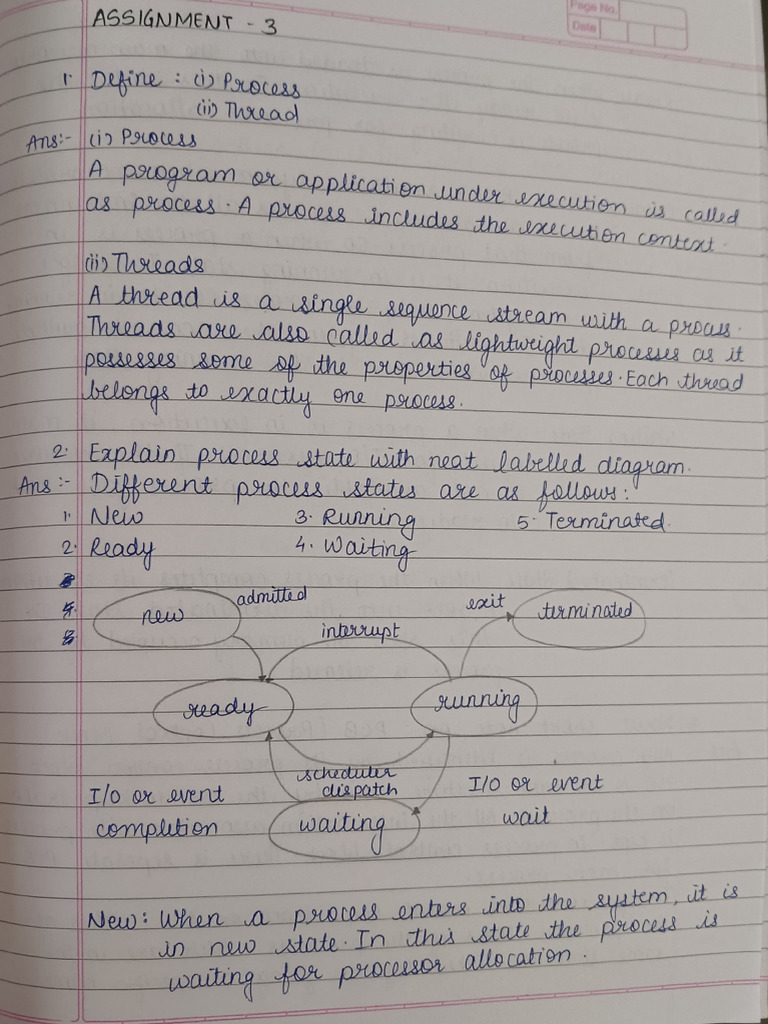 Page No.
Date
ASSIGNMENT - 3
1. Define : (i) Process
(ii) Thread
Ans:- (i) Process
A program or application under execution is called
as process. A process includes the execution context.
(ii) Threads
A thread is a single sequence stream with a process.
Threads are also called as lightweight processes as it
possesses some of the properties of processes. Each thread
belongs to exactly one process.
2. Explain process state with neat labelled diagram.
Ans :- Different process states are as follows:
1. New 3. Running 5. Terminated.
2. Ready 4. Waiting
new admitted exit terminated
interrupt
ready running
scheduler
dispatch
I/O or event
completion
waiting
I/O or event
wait
New: When a process enters into the system, it is
in new state. In this state the process is
waiting for processor allocation.